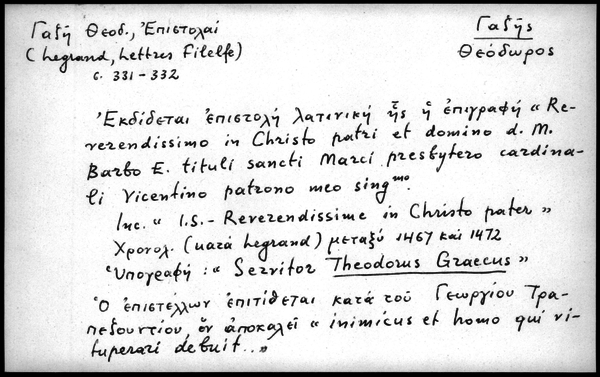 Γαζῆ Θεοδ., Ἐπιστολαί
Γαζῆς
(Legrand, Lettres Filelfe)
Θεόδωρος
σ. 331-332
Ἐκδίδεται ἐπιστολή λατινική ἧς ἡ ἐπιγραφή « Re-
verendissimo in Christo patri et domino d. M.
Barbo E. tituli sancti Marci presbytero cardina-
li Vicentino patrono meo singmo.
Inc. « I.S. - Reverendissime in Christo pater »
Χρονολ. (κατά Legrand) μεταξύ 1467 καί 1472
Ὑπογραφή : « Servitor Theodorus Graecus »
Ὁ ἐπιστέλλων ἐπιτίθεται κατά τοῦ Γεωργίου Τρα-
πεζουντίου, ὅν ἀποκαλεῖ « inimicus et homo qui vi-
tuperari debuit.. »